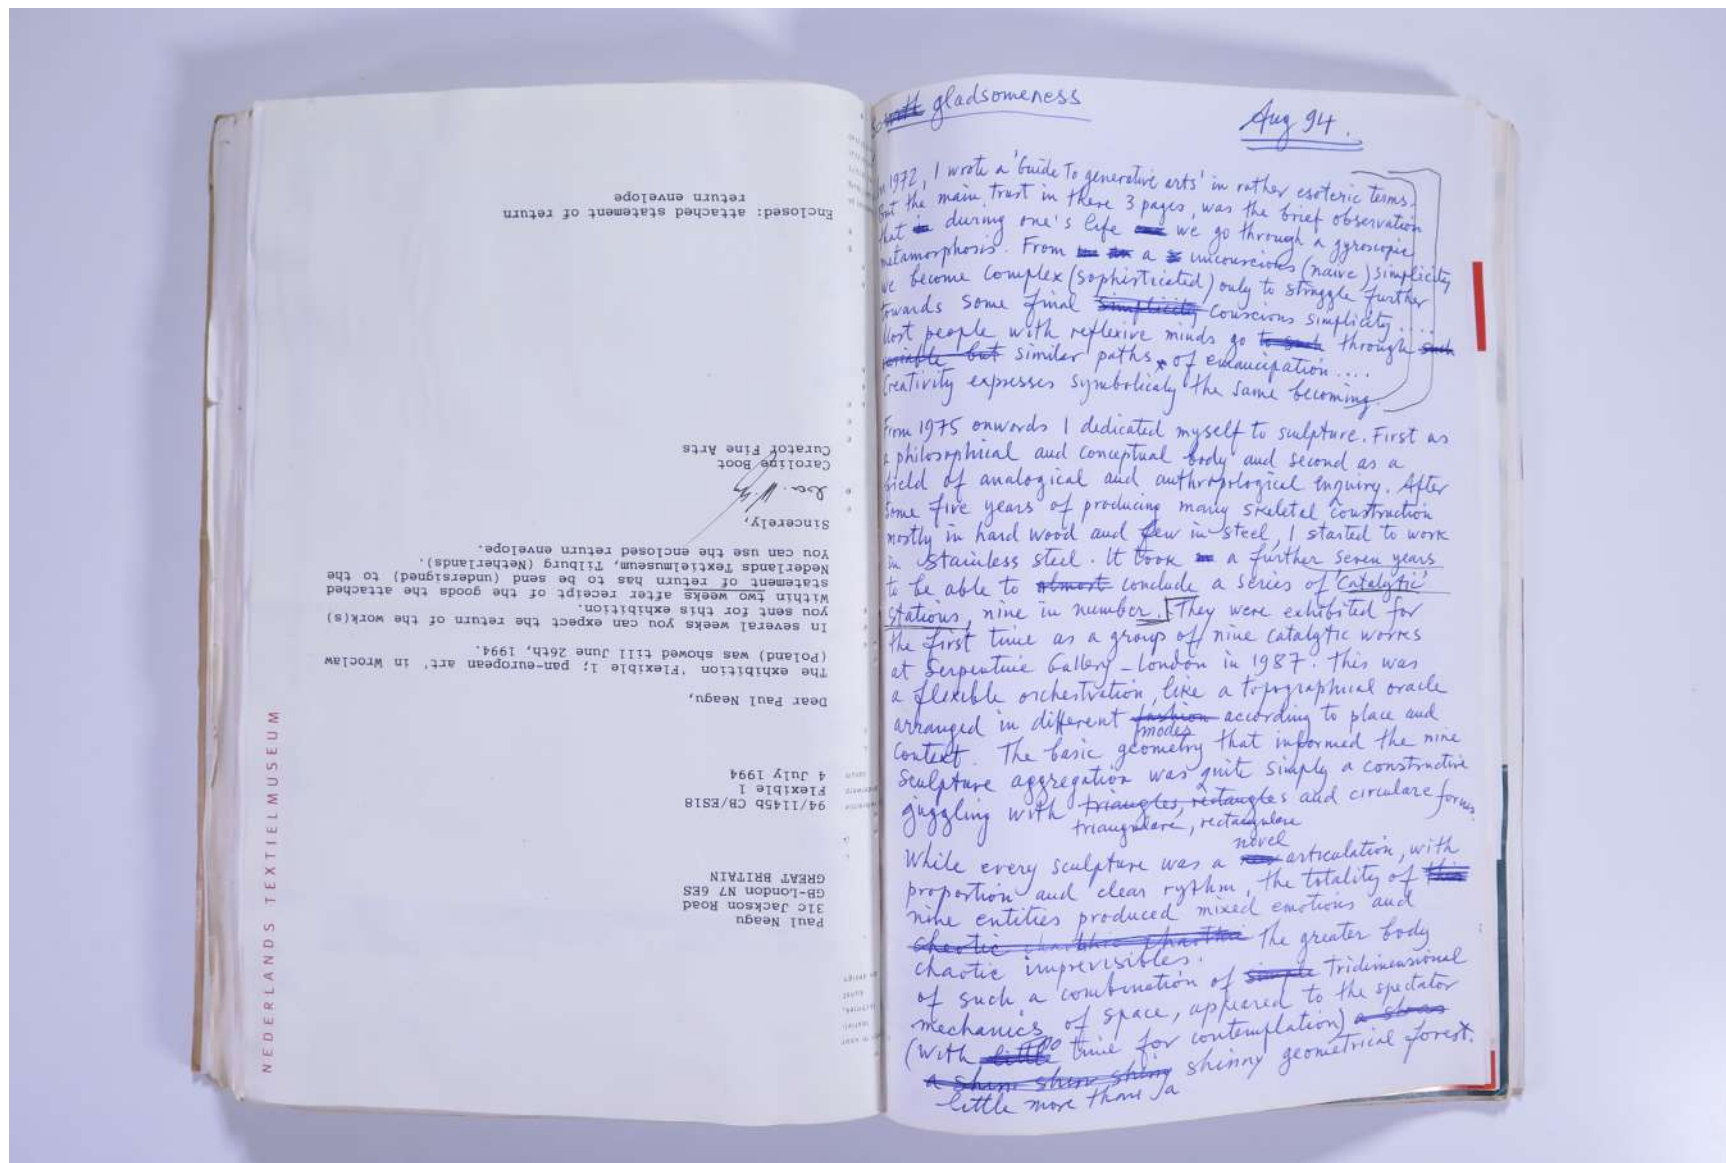 NEDERLANDS TEXTIELMUSEUM
Paul Neagu
31c Jackson Road
GB-London N7 6ES
GREAT BRITAIN
94/1145b CB/ES18
Flexible 1
4 July 1994
Dear Paul Neagu,
The exhibition 'Flexible 1; pan-european art' in Wroclaw
(Poland) was showed till June 26th, 1994.
In several weeks you can expect the return of the work(s)
you sent for this exhibition.
Within two weeks after receipt of the goods the attached
statement of return has to be send (undersigned) to the
Nederlands Textielmuseum, Tilburg (Netherlands).
You can use the enclosed return envelope.
Sincerely,
Caroline Boot
Curator Fine Arts
Enclosed: attached statement of return
return envelope
with gladsomeness
Aug 94.
In 1972, I wrote a 'Guide to generative arts' in rather esoteric terms.
But the main trust in these 3 pages, was the brief observation
that during one's life we go through a gyroscopic
metamorphosis. From a unconscious (naive) simplicity
we become complex (sophisticated) only to struggle further
towards some final simplicity conscious simplicity....
Most people with reflexive minds go to such through such
variable but similar paths of emancipation....
Creativity expresses symbolicaly the same becoming.
From 1975 onwords I dedicated myself to sculpture. First as
a philosophical and conceptual body and second as a
field of analogical and anthropological enquiry. After
some five years of producing many skeletal construction
mostly in hard wood and few in steel, I started to work
in stainless steel. It took a further seven years
to be able to almost conclude a series of 'Catalytic
Stations, nine in number. They were exhibited for
the first time as a group of nine catalytic works
at Serpentine Gallery - London in 1987. This was
a flexible orchestration, like a topographical oracle
arranged in different fashion according to place and
modes
context. The basic geometry that informed the nine
sculpture aggregation was quite simply a constructive
juggling with triangles, rectangles and circulare forms.
triangulare, rectangulare
novel
While every sculpture was a new articulation, with
proportion and clear rythm, the totality of this
nine entities produced mixed emotions and
chaotic The greater body
chaotic imprevisibles.
of such a combination of simple tridimensional
mechanics of space, appeared to the spectator
(with little no time for contemplation)
a shiny shinny geometrical forest.
little more than a